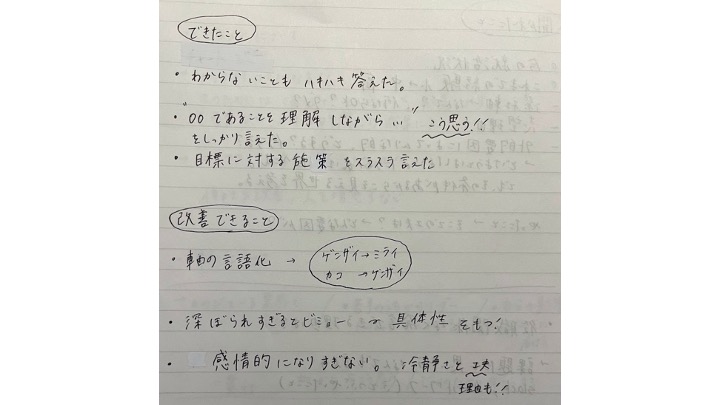 できたこと
・わからないことも ハキハキ 答えた。
・"〇〇であることを理解しながら…" こう思う!!
をしっかり言えた。
・目標に対する施策をスラスラ言えた
改善できること
・軸の言語化 → ゲンザイ→ミライ
カコ → ゲンザイ
・深ぼられすぎるとビミョー → 具体性をもつ!
・感情的になりすぎない。冷静さと
理由も!!